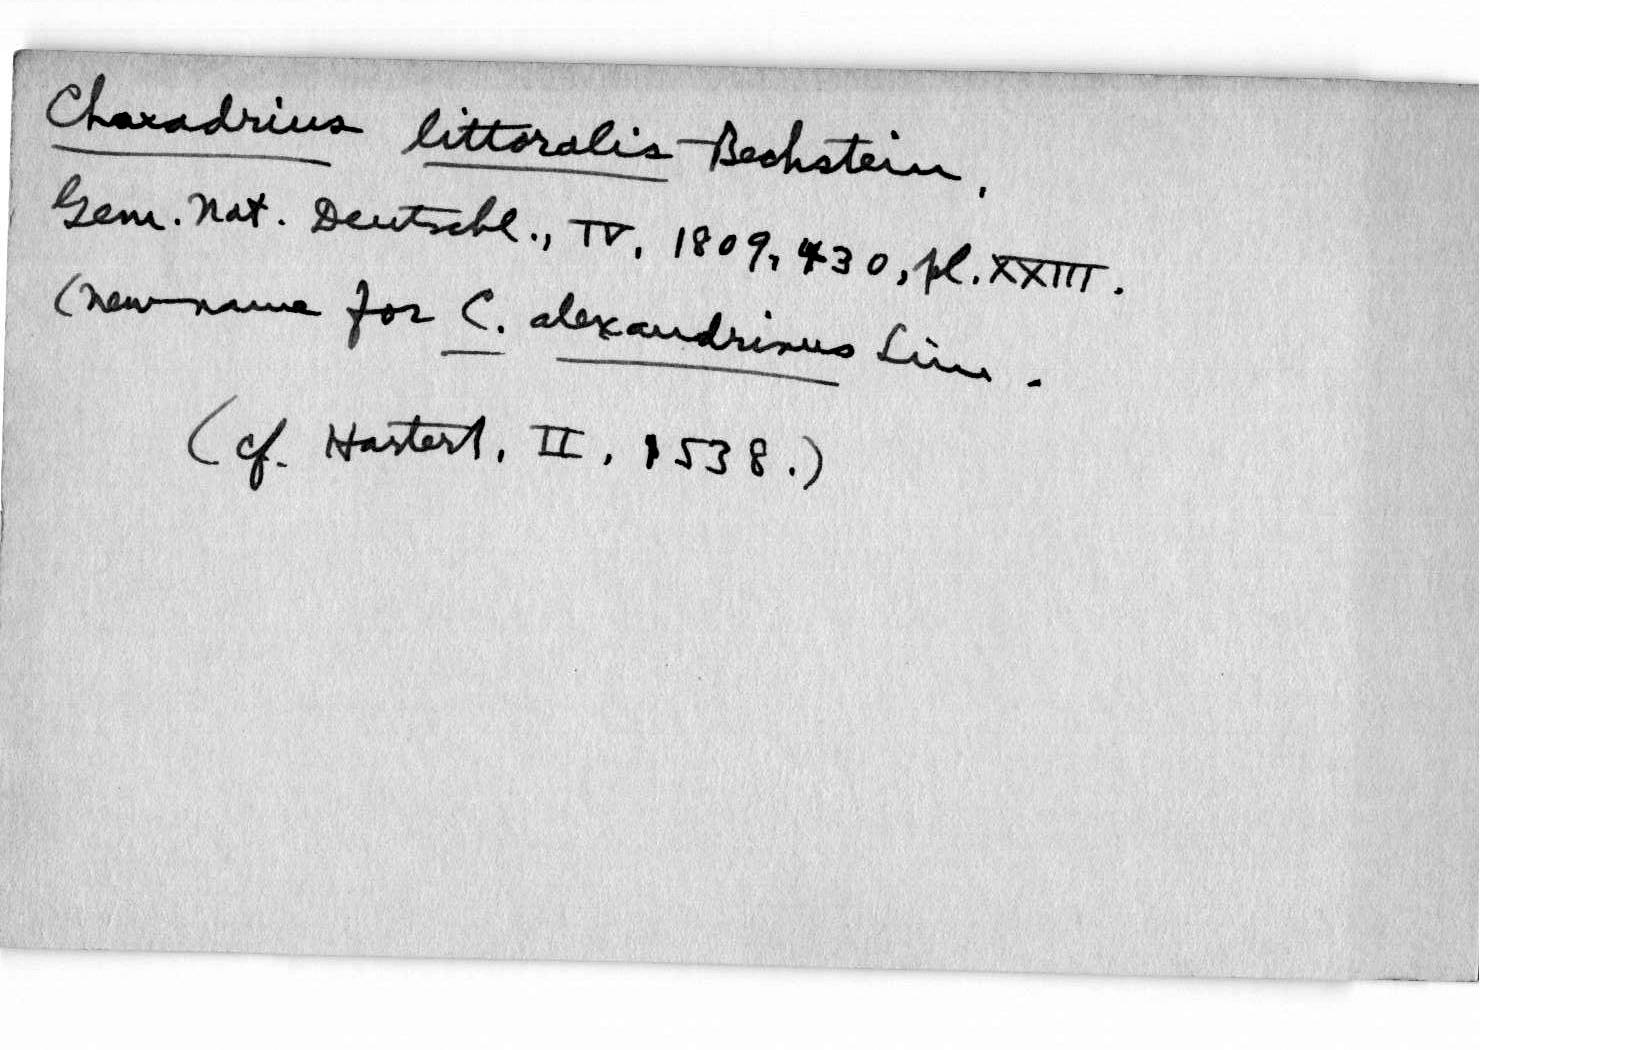 Charadrius littoralis Bechstein,
Gem. Nat. Deutschl., IV, 1809, 430, pl. XXIII.
(new name for C. alexandrinus Linn.
(cf. Hartert, II, 1538.)